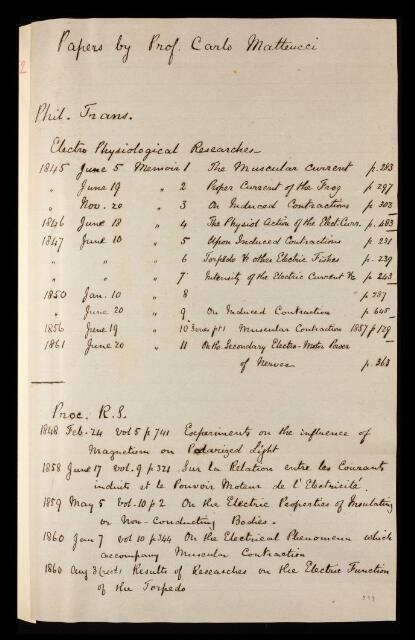 Papers by Prof. Carlo Matteucci
2
Phil. Trans.
Electro Physiological Researches
1845 June 5 Memoir 1 The Muscular Current p. 283
" June 19 " 2 Proper Current of the Frog p. 297
" Nov. 20 " 3 On Induced Contractions p. 303
1846 June 18 " 4 The Physiol Action of the Elect. Curr. p. 483
1847 June 10 " 5 Upon Induced Contractions p. 231
" " " 6 Torpedo & other Electric Fishes p. 239
" " " 7 Intensity of the Electric Current &c p. 243
1850 Jan. 10 " 8 " p. 287
" June 20 " 9 On Induced Contraction p. 645
1856 June 19 " 10 Series pt 1 Muscular Contraction 1857 p 129
1861 June 20 " 11 On the Secondary Electro-Motor Power
of Nerves p. 363
Proc. R.S.
1848 Feb. 24 vol 5 p 741 Experiments on the influence of
Magnetism on Polarized Light
1858 June 17 vol. 9 p 321. Sur la Relation entre les Courant
induits et le Pouvoir Moteur de l'Electricité.
1859 May 5 vol. 10 p 2 On the Electric Properties of Insulating
or Non-Conducting Bodies.
1860 Jan 7 vol 10 p 344 On the Electrical Phenomena which
accompany Muscular Contraction
1860 Aug 3 Results of Researches on the Electric Function
of the Torpedo